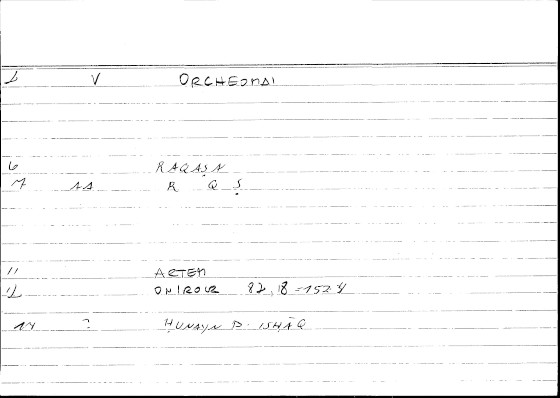 V ORCHEOMAI
6 RAQAṢN
7 AA R Q Ṣ
11 ARTEM
12 ONIROCR 82,18 = 152 4
14 ? ḤUNAYN B. ISḤĀQ